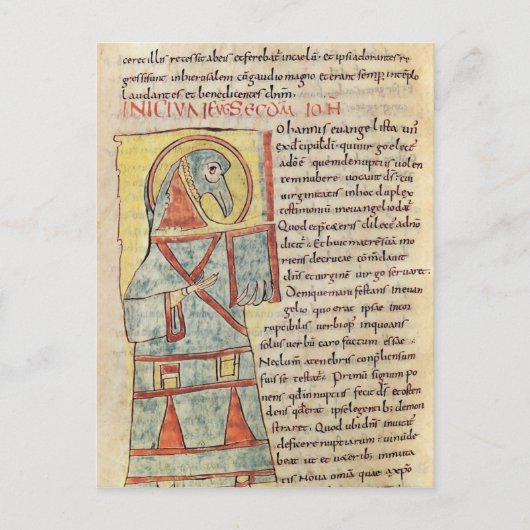 cerecillis recessit abeis etferebat incaelū. et ipsiadorantes re
gressisunt inhierusalem cūgaudio magno eterant semp intēplo
laudantes et benedicentes dnm.
INICIVM EVG SECDM IOH
Iohannis evangelista un'
exdiscipulis dī. quiuirgo elect'
adō ē quemdenuptiis uolen
temnubere uocauit ds. cui
uirginitatis inhoc duplex
testimoniū ineuangelio dat
Quod etp̄ceteris dilect' adnō
dicit. Et huic matrē suā mo
riens decruce cōmdauit
dns etuirginē uirgo seruaret.
Deniquemanifestans ineuan
gelio quo erat ipsae incor
ruptibilis uerbi op' inquoans
solus uerbū caro factum essae
Neclum atenebris conp̄hensum
fuisse testat. Primū signum po
nens qd innuptiis fecit ds etosten
dens qderat ipse legentib; demon
straret. Quod ubi dns inuitat'
deficere nuptiarum uinū de
beat ut et ueterib; inmuta
tis noua omīa quae axpo